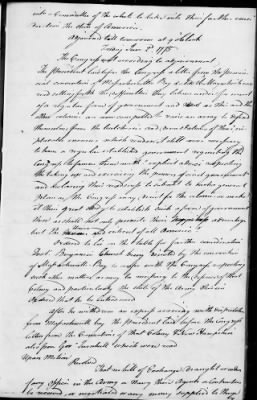 into a Committee of the whole to take into their farther consi-
deration the state of America
Adjourned till tomorrow at 9 oClock
Friday June 2d 1775
The Congress met according to adjournment
The President laid before the Congress a letter from the provin-
cial convention of Massachusetts Bay dated May 16 which was
read setting forth the difficulties they labour under for want
of a regular form of government and as they and the
other colonies are now compelled to raise an army to defend
themselves from the butcheries and devastations of their im-
placable enemies which renders it still more necessary
to have a regular established government requesting the
Congress to favour them with explicit advice respecting
the taking up and exercising the powers of civil government
and declaring their readiness to submit to such a general
plan as the Congress may direct for the colonies or make it
their great study to establish such a form of government
there as shall not only promote their advantage
but the union and interest of all America
Ordered to lie on the table for further consideration
Doct. Benjamin Church being by the convention
of Massachusetts Bay to confer with the Congress respecting
such other matters as may be necessary to the defence of that
Colony and particularly the state of the Army therein
Ordered that he be introduced
After he withdrew an express arriving with dispatches
from Massachusetts bay the President laid before the Congress
letters from the Convention of that Colony & New Hampshire
also from Gov Trumbull which were read
Upon Motion
Resolved
That no bill of Exchange draught or order
of any Officer in the Army or Navy their Agents or Contractors
be received or negotiated or any money supplied to them